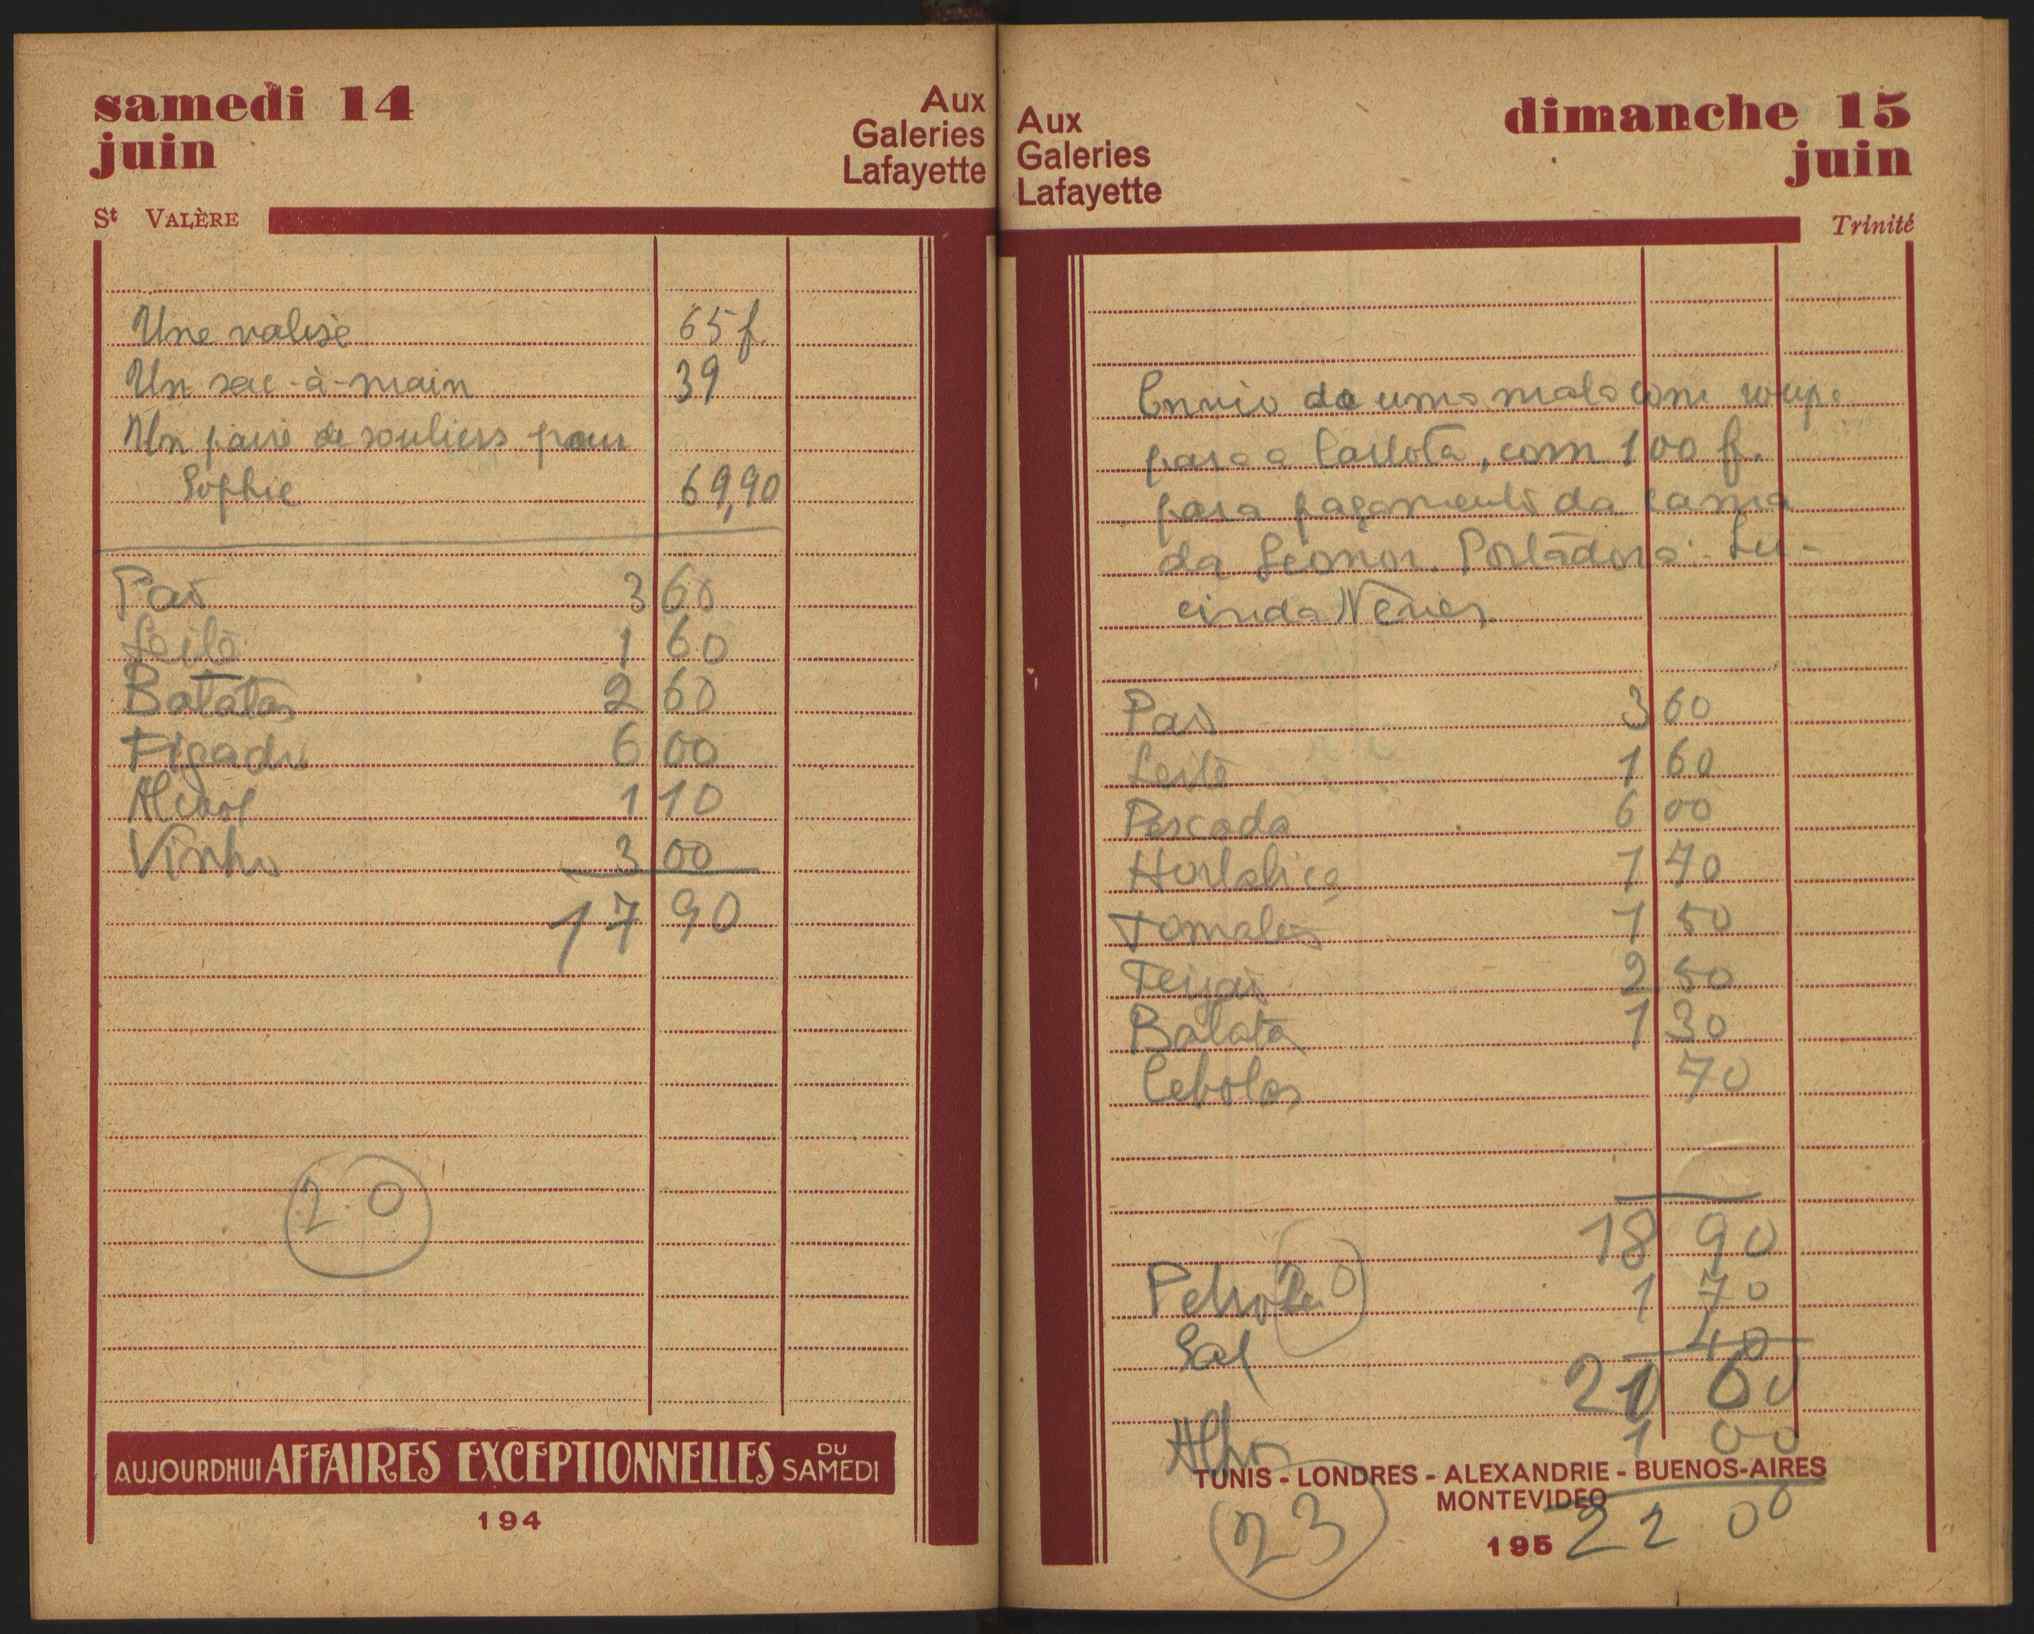 samedi 14
juin
Aux
Galeries
Lafayette
St VALÈRE
Une valise 65 f.
Un sac-à-main 39
Un paire de souliers pour
Sophie 69,90
Pão 3 60
Leite 1 60
Batatas 2 60
Figado 6 00
Alcool 1 10
Vinho 3 00
17 90
20
AUJOURDHUI AFFAIRES EXCEPTIONNELLES DU SAMEDI
194
Aux
Galeries
Lafayette
dimanche 15
juin
Trinité
Envio de uma mala com roupa
para a Carlota, com 100 f.
para pagamento da cama
da Leonor. Portadora: Lu-
cinda Neves.
Pão 3 60
Leite 1 60
Pescada 6 00
Hortaliça 1 70
Tomates 1 50
Feijão 2 50
Batata 1 30
Cebolas 70
18 90
20
Petroleo 1 70
Sal 40
21 00
Alhos 1 00
TUNIS - LONDRES - ALEXANDRIE - BUENOS-AIRES
MONTEVIDEO
22 00
23
195